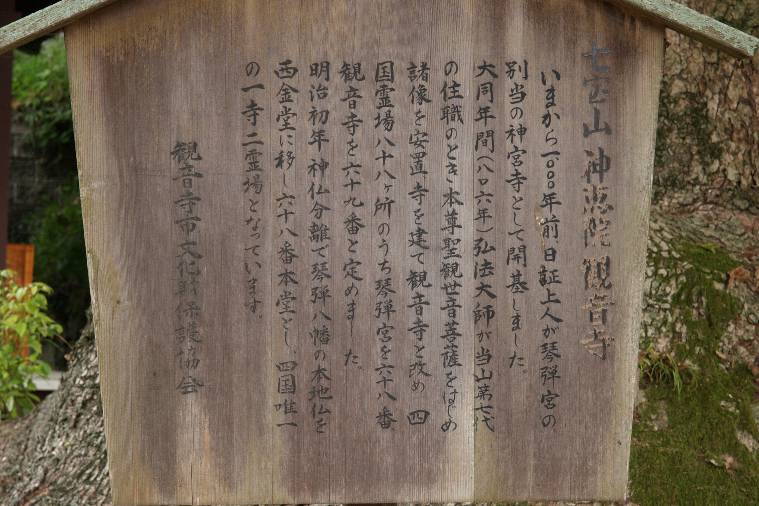 七宝山 神恵院 観音寺
いまから一、三〇〇年前、日証上人が琴弾宮の
別当の神宮寺として開基しました。
大同年間(八〇六年)弘法大師が当山第七代
の住職のとき、本尊聖観世音菩薩をはじめ
諸像を安置、寺を建て観音寺と改め、四
国霊場八十八ヶ所のうち琴弾宮を六十八番
観音寺を六十九番と定めました。
明治初年神仏分離で琴弾八幡の本地仏を
西金堂に移し六十八番本堂とし、四国唯一
の一寺二霊場となっています。
観音寺市文化財保護協会